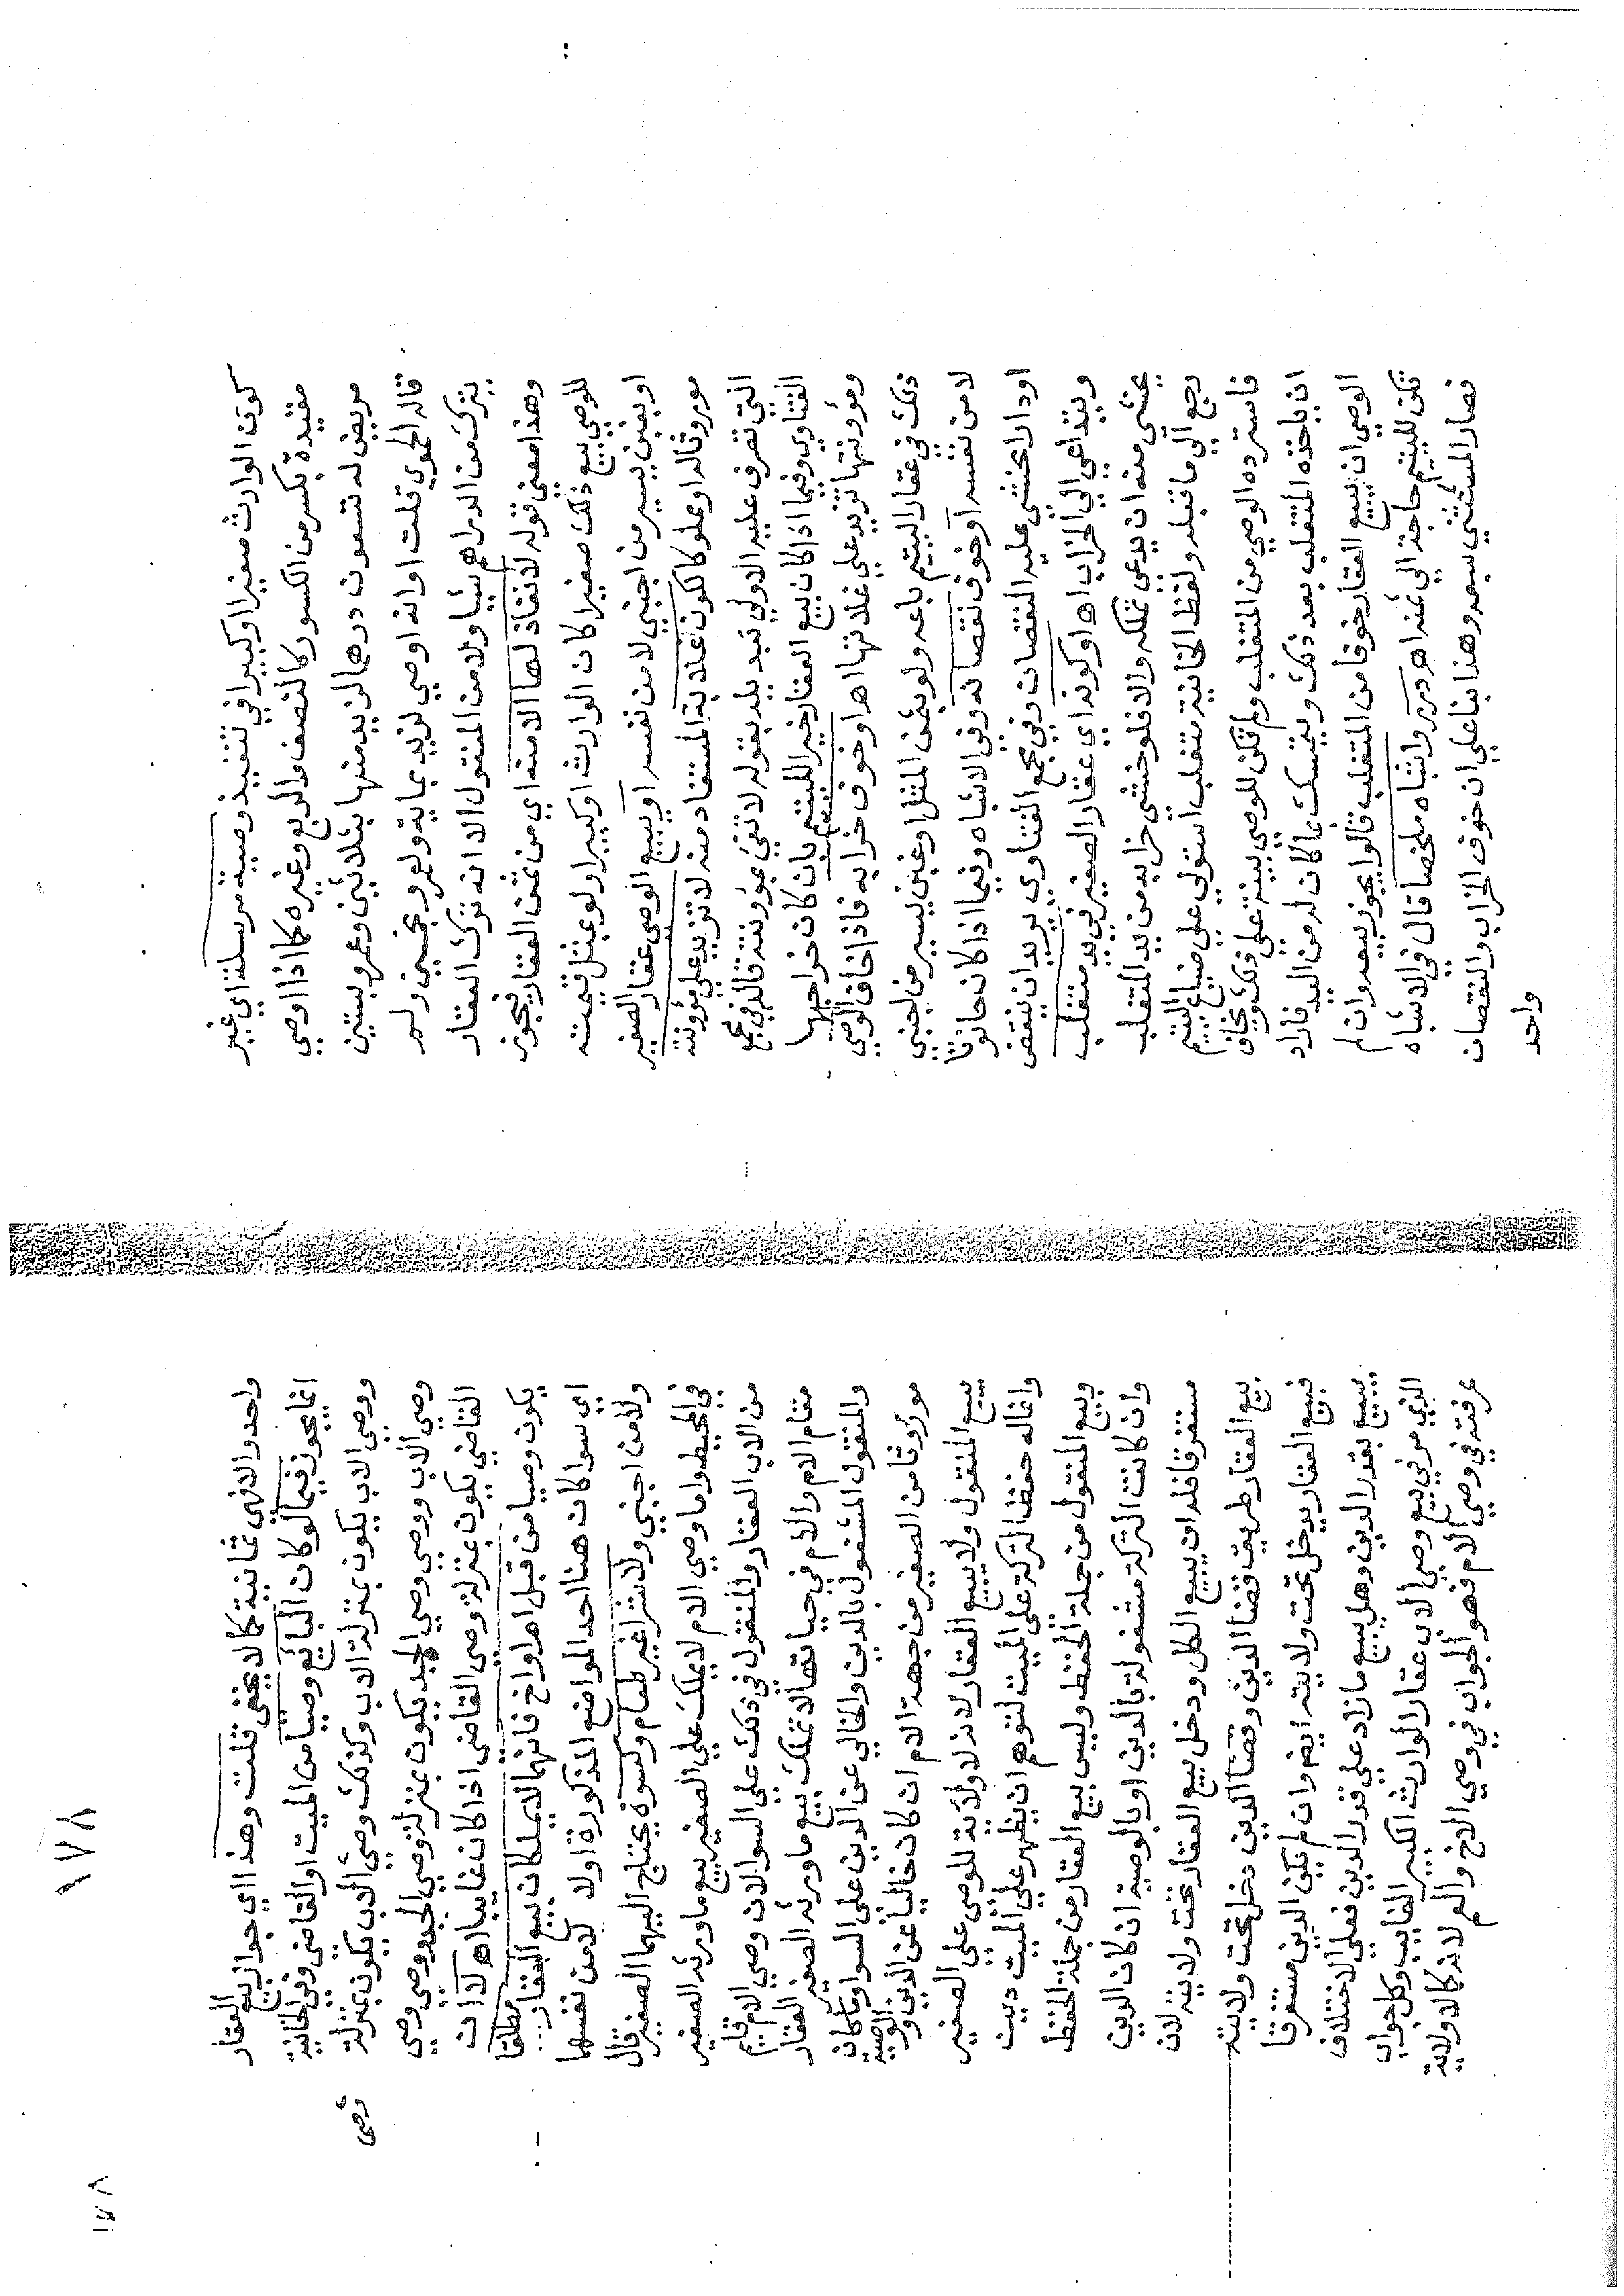 كون الوارث صغيرا او كبيرا في تنفيذ وصية مرسلة اي غير
مقيدة بكسر من الكسور كالنصف والربع وغيره كما اذا اوصي
مريض له تسعون درهما لزيد منها بثلاثين وعمرو بستين
قاله الحموي قلت او انه اوصي لزيد بماية ولعمرو بخمسين ولم
يترك من الدراهم شيا ولا من المنقول الا انه ترك العقار
وهذا معني قوله لا نفاذ لها الا منه اي من ثمن العقار فيجوز
للوصي بيع ذلك صغيرا كان الوارث او كبيرا ولو بمثل قيمته
او بغبن يسير من اجنبي لا من نفسه او يبيع الوصي عقار الصغير
موروثا له او مملوكا لكون غلاته المستفاد منه لا تزيد علي مؤونته
التي تصرف عليه الاولي تبديله بقوله لا تفي بمؤونته قال في مجمع
الفتاوي وفيما اذا كان بيع العقار خيرا لليتيم بان كان خراجها
ومؤونتها تزيد علي غلاتها اهـ او خوف خرابه فاذا خاف الوصي
ذلك في عقار اليتيم باعه ولو بثمن المثل او غبن يسير من اجنبي
لا من نفسه او خوف نقصانه وفي الاشباه وفيما اذا كان حانوتا
او دارا يخشي عليه النقصان وفي مجمع الفتاوي يريد ان ينقض
ويتداعي الي الخراب اهـ او كونه اي عقار الصغير في يد متغلب
يخشي منه ان يدعي تملكه والا فلو خشي خرابه من يد المتغلب
رجع الي ما قبله ولفظ الخانية متغلب استولي علي ضياع اليتيم
فاسترده الوصي من المتغلب ولم تكن للوصي بينة علي ذلك ويخاف
ان ياخذه المتغلب بعد ذلك ويتمسك بما كان له من اليد فاراد
الوصي ان يبيع العقار خوفا من المتغلب قالوا يجوز بيعه وان لم
تكن لليتيم حاجة الي ثمنه اهـ درر واشباه ملخصا قال في الاشباه
فصار المستثني سبعة وهذا بنا علي ان خوف الخراب والنقصان
واحد
١٧٨
١٧٨
واحد والا فهي ثمانية كما لا يخفي قلت وهذا اي جواز بيع العقار
انما يجوز فيما لو كان البائع وصيا من الميت او القاضي وفي الخانية
ووصي الاب يكون بمنزلة الاب وكذلك وصي الاب يكون بمنزلة
وصي
وصي الاب ووصي وصي الجد يكون بمنزلة وصي الجد ووصي وصي
القاضي يكون بمنزلة وصي القاضي اذا كان غايبا اهـ لا ان
يكون وصيا من قبل ام او اخ فانهما لا يملكان بيع العقار مطلقا
اي سوا كان هنا احد المواضع المذكورة او لا لا من نفسهما
ولا من اجنبي ولا شرا غير طعام وكسوة يحتاج اليهما الصغير قال
في المحيط واما وصي الام لا يملك علي الصغير بيع ما ورثه الصغير
من الاب العقار والمنقول في ذلك علي السوا لان وصي الام قايم
مقام الام والام في حياتها لا تملك بيع ما ورثه الصغير العقار
والمنقول المشغول بالدين والخالي عن الدين علي السوا وما كان
موروثا من الصغير من جهة الام ان كان خاليا عن الدين والوصية
يبيع المنقول ولا يبيع العقار لانه لا ولاية للوصي علي الصغير
وانما له حفظ التركة علي الميت لتوهم ان يظهر علي الميت دين
وبيع المنقول من جملة الحفظ وليس بيع العقار من جملة الحفظ
وان كانت التركة مشغولة بالدين او بالوصية ان كان الدين
مستغرقا فله ان يبيع الكل ودخل بيع العقار تحت ولايته لان
بيع العقار طريق قضا الدين وقضا الدين دخل تحت ولايته
فبيع العقار يدخل تحت ولايته ايضم وان لم يكن الدين مستغرقا
يبيع بقدر الدين وهل يبيع ما زاد علي قدر الدين فعلي الاختلاف
الذي مر في بيع وصي الاب عقار الوارث الكبير الغايب وكل جواب
عرفته في وصي الام فهو الجواب في وصي الاخ والعم لانه كالا ولاية